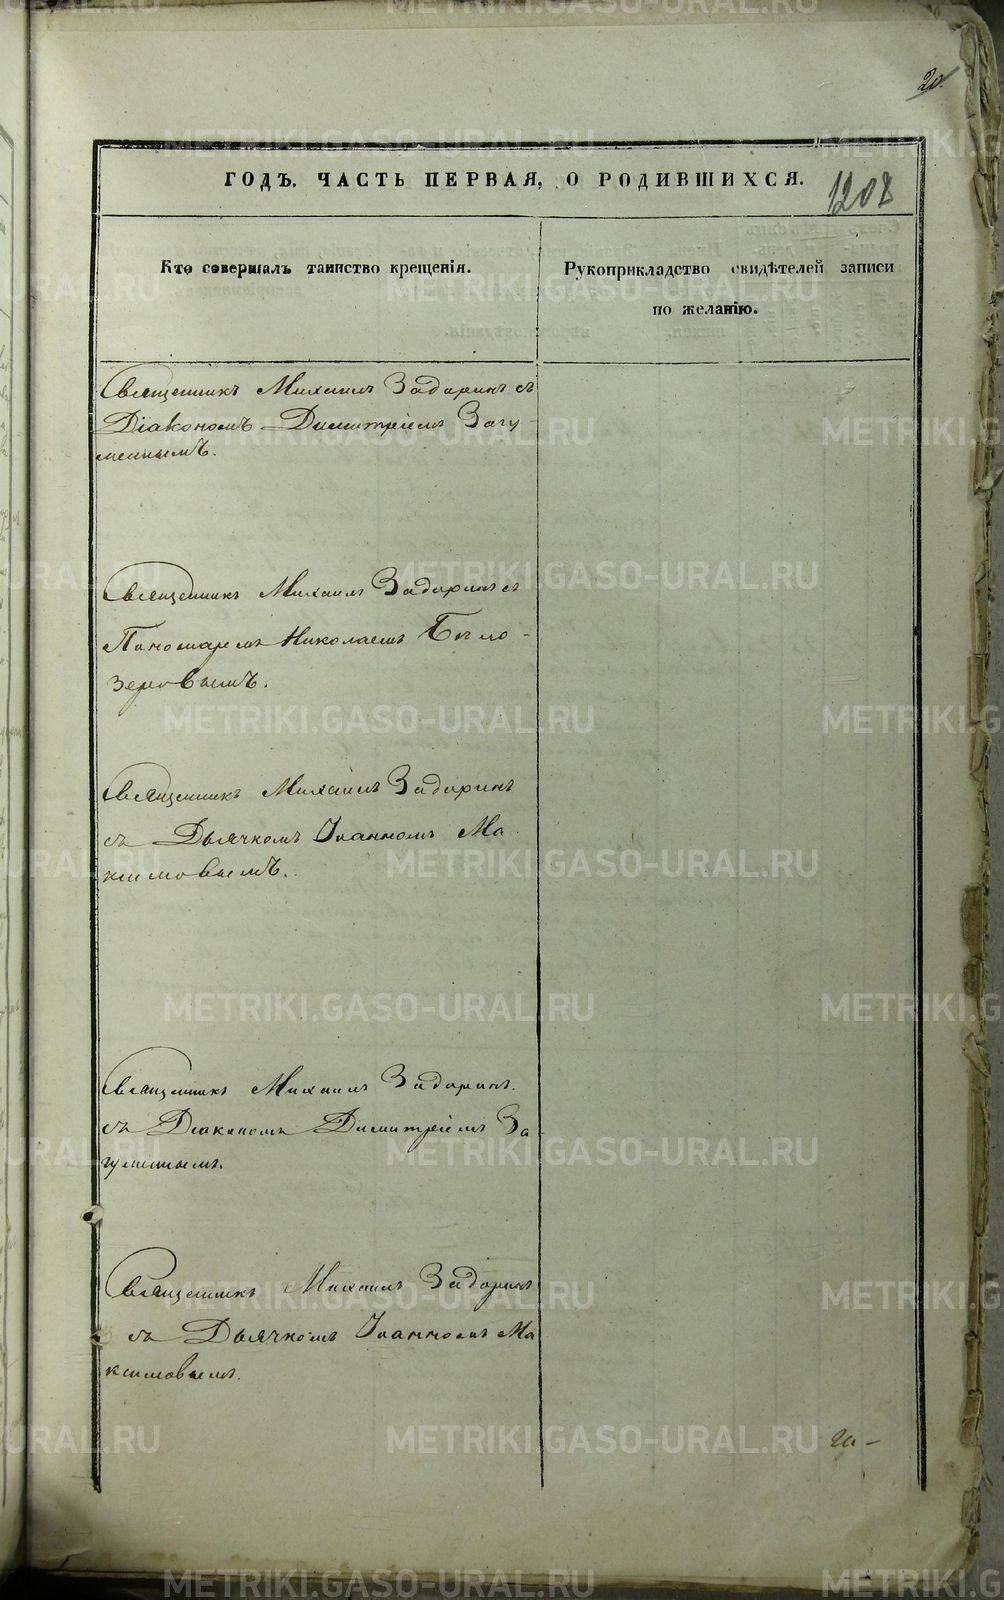 20.
ГОДЪ. ЧАСТЬ ПЕРВАЯ, О РОДИВШИХСЯ.
1208
Кто совершалъ таинство крещенія.
Рукоприкладство свидѣтелей записи
по желанію.
Священникъ Михаилъ Задоринъ съ
Діакономъ Димитріемъ Загу-
меннымъ.
Священникъ Михаилъ Задоринъ съ
Пономаремъ Николаемъ Бѣло-
зеровымъ.
Священникъ Михаилъ Задоринъ
съ Дьячкомъ Іоанномъ Ма-
ксимовымъ.
Священникъ Михаилъ Задоринъ.
съ Діакономъ Димитріемъ За-
гуменнымъ.
Священникъ Михаилъ Задоринъ
съ Дьячкомъ Іоанномъ Ма
ксимовымъ.
METRIKI.GASO-URAL.RU